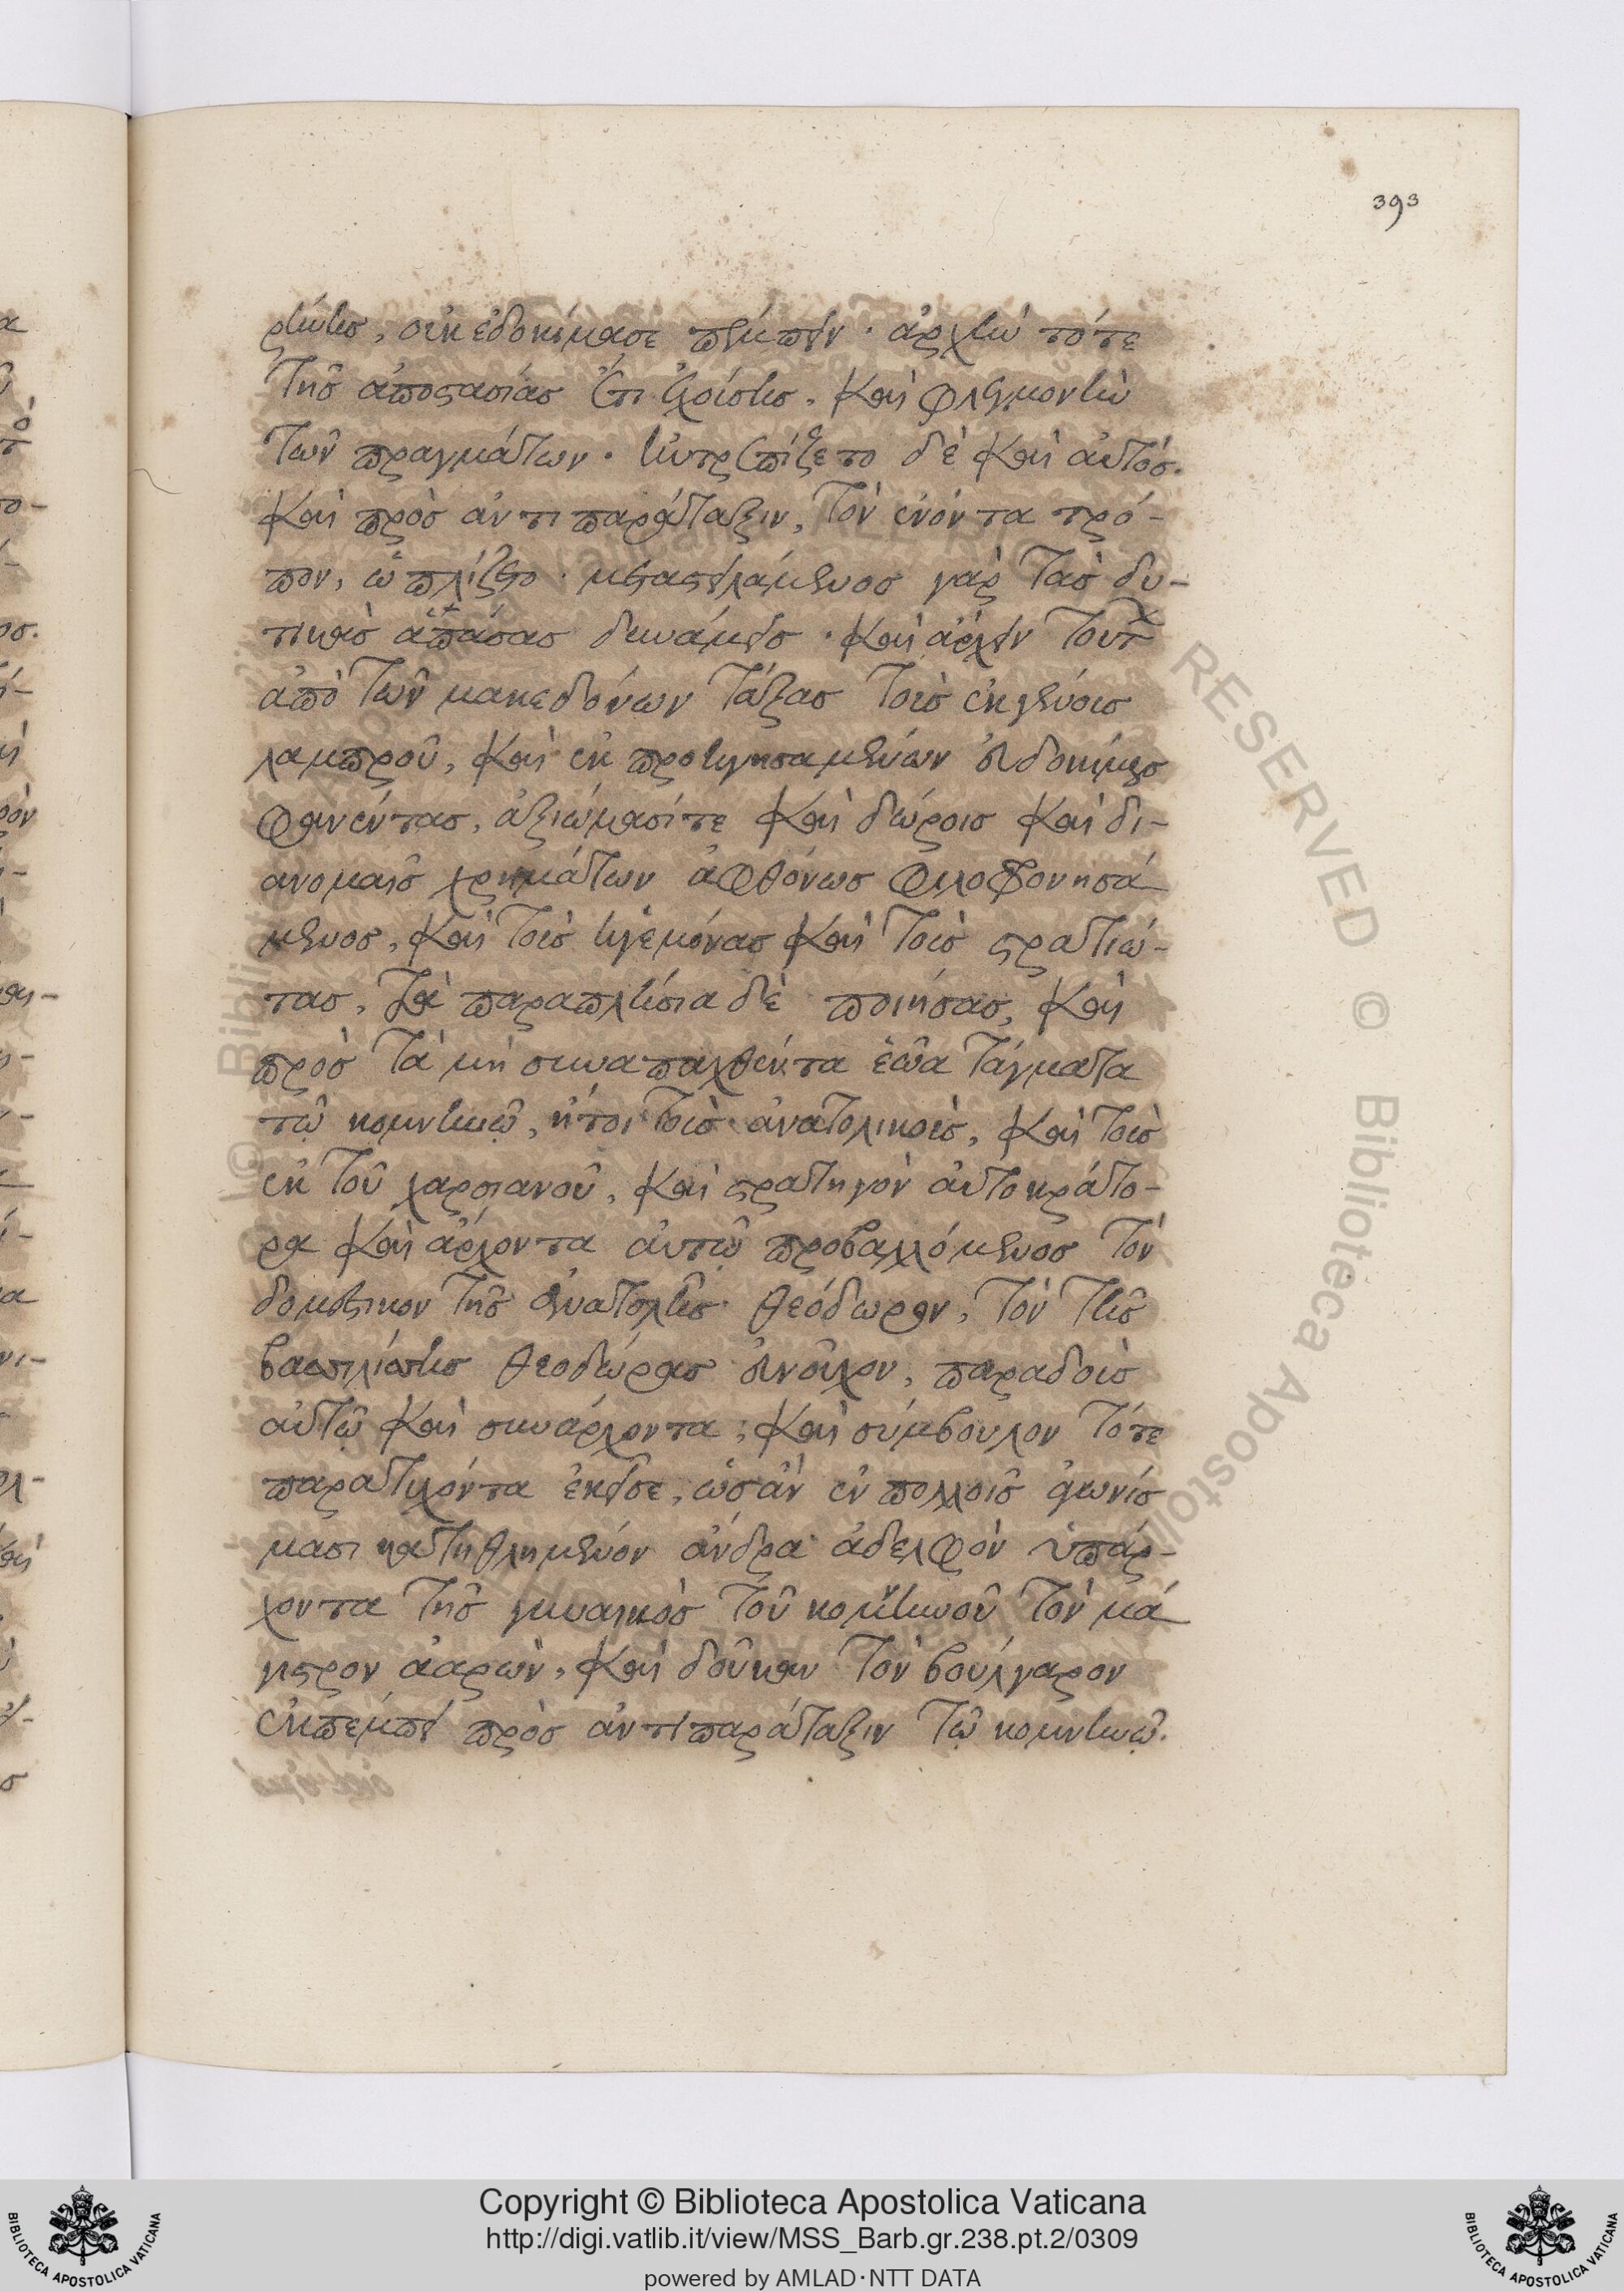 393
ρήνης, οὐκ ἐδοκίμασε πέμπειν· ἀρχὴν τότε
τῆς ἀποστασίας ἔτι χούσης, καὶ φλεγμονὴν
τῶν πραγμάτων. ηὐτρεπίζετο δὲ καὶ αὐτός.
καὶ πρὸς ἀντιπαράταξιν, τὸν ἐνόντα τρό-
πον, ὡπλίζετο. μεταστειλάμενος γὰρ τὰς δυ-
τικὰς ἁπάσας δυνάμεις. καὶ ἄρχειν τούτ
ἀπὸ τῶν μακεδόνων τάξας τοὺς ἐκ γένους
λαμπροῦ, καὶ ἐκ προηγησαμένων εὐδοκίμους
φανέντας, ἀξιώμασί τε καὶ δώροις καὶ δι-
ανομαῖς χρημάτων ἀφθόνως φιλοφρονησά
μενος, καὶ τοὺς ἡγεμόνας καὶ τοὺς στρατιώ-
τας, τὰ παραπλήσια δὲ ποιήσας, καὶ
πρὸς τὰ μὴ συναπαχθέντα ἑῶα τάγματα
τῷ κομνηνῷ, ἤτοι τοὺς ἀνατολικοὺς, καὶ τοὺς
ἐκ τοῦ χαρσιανοῦ, καὶ στρατηγὸν αὐτοκράτο-
ρα καὶ ἄρχοντα αὐτῷ προβαλλόμενος τὸν
δομέστικον τῆς ἀνατολῆς θεόδωρον, τὸν τῆς
βασιλίσσης θεοδώρας εὐνοῦχον, παραδοὺς
αὐτῷ καὶ συνάρχοντα, καὶ σύμβουλον τότε
παρατυχόντα ἐκεῖσε, ὡσὰν ἐν πολλοῖς ἀγωνίσ
μασι κατηθλημένον ἄνδρα ἀδελφὸν ὑπάρ-
χοντα τῆς γυναικὸς τοῦ κομνηνοῦ τὸν μά
γιστρον ἀαρὼν, καὶ δοῦκαν τὸν βούλγαρον
ἐκπέμπει πρὸς ἀντιπαράταξιν τῷ κομνηνῷ.
Copyright © Biblioteca Apostolica Vaticana
http://digi.vatlib.it/view/MSS_Barb.gr.238.pt.2/0309
powered by AMLAD·NTT DATA